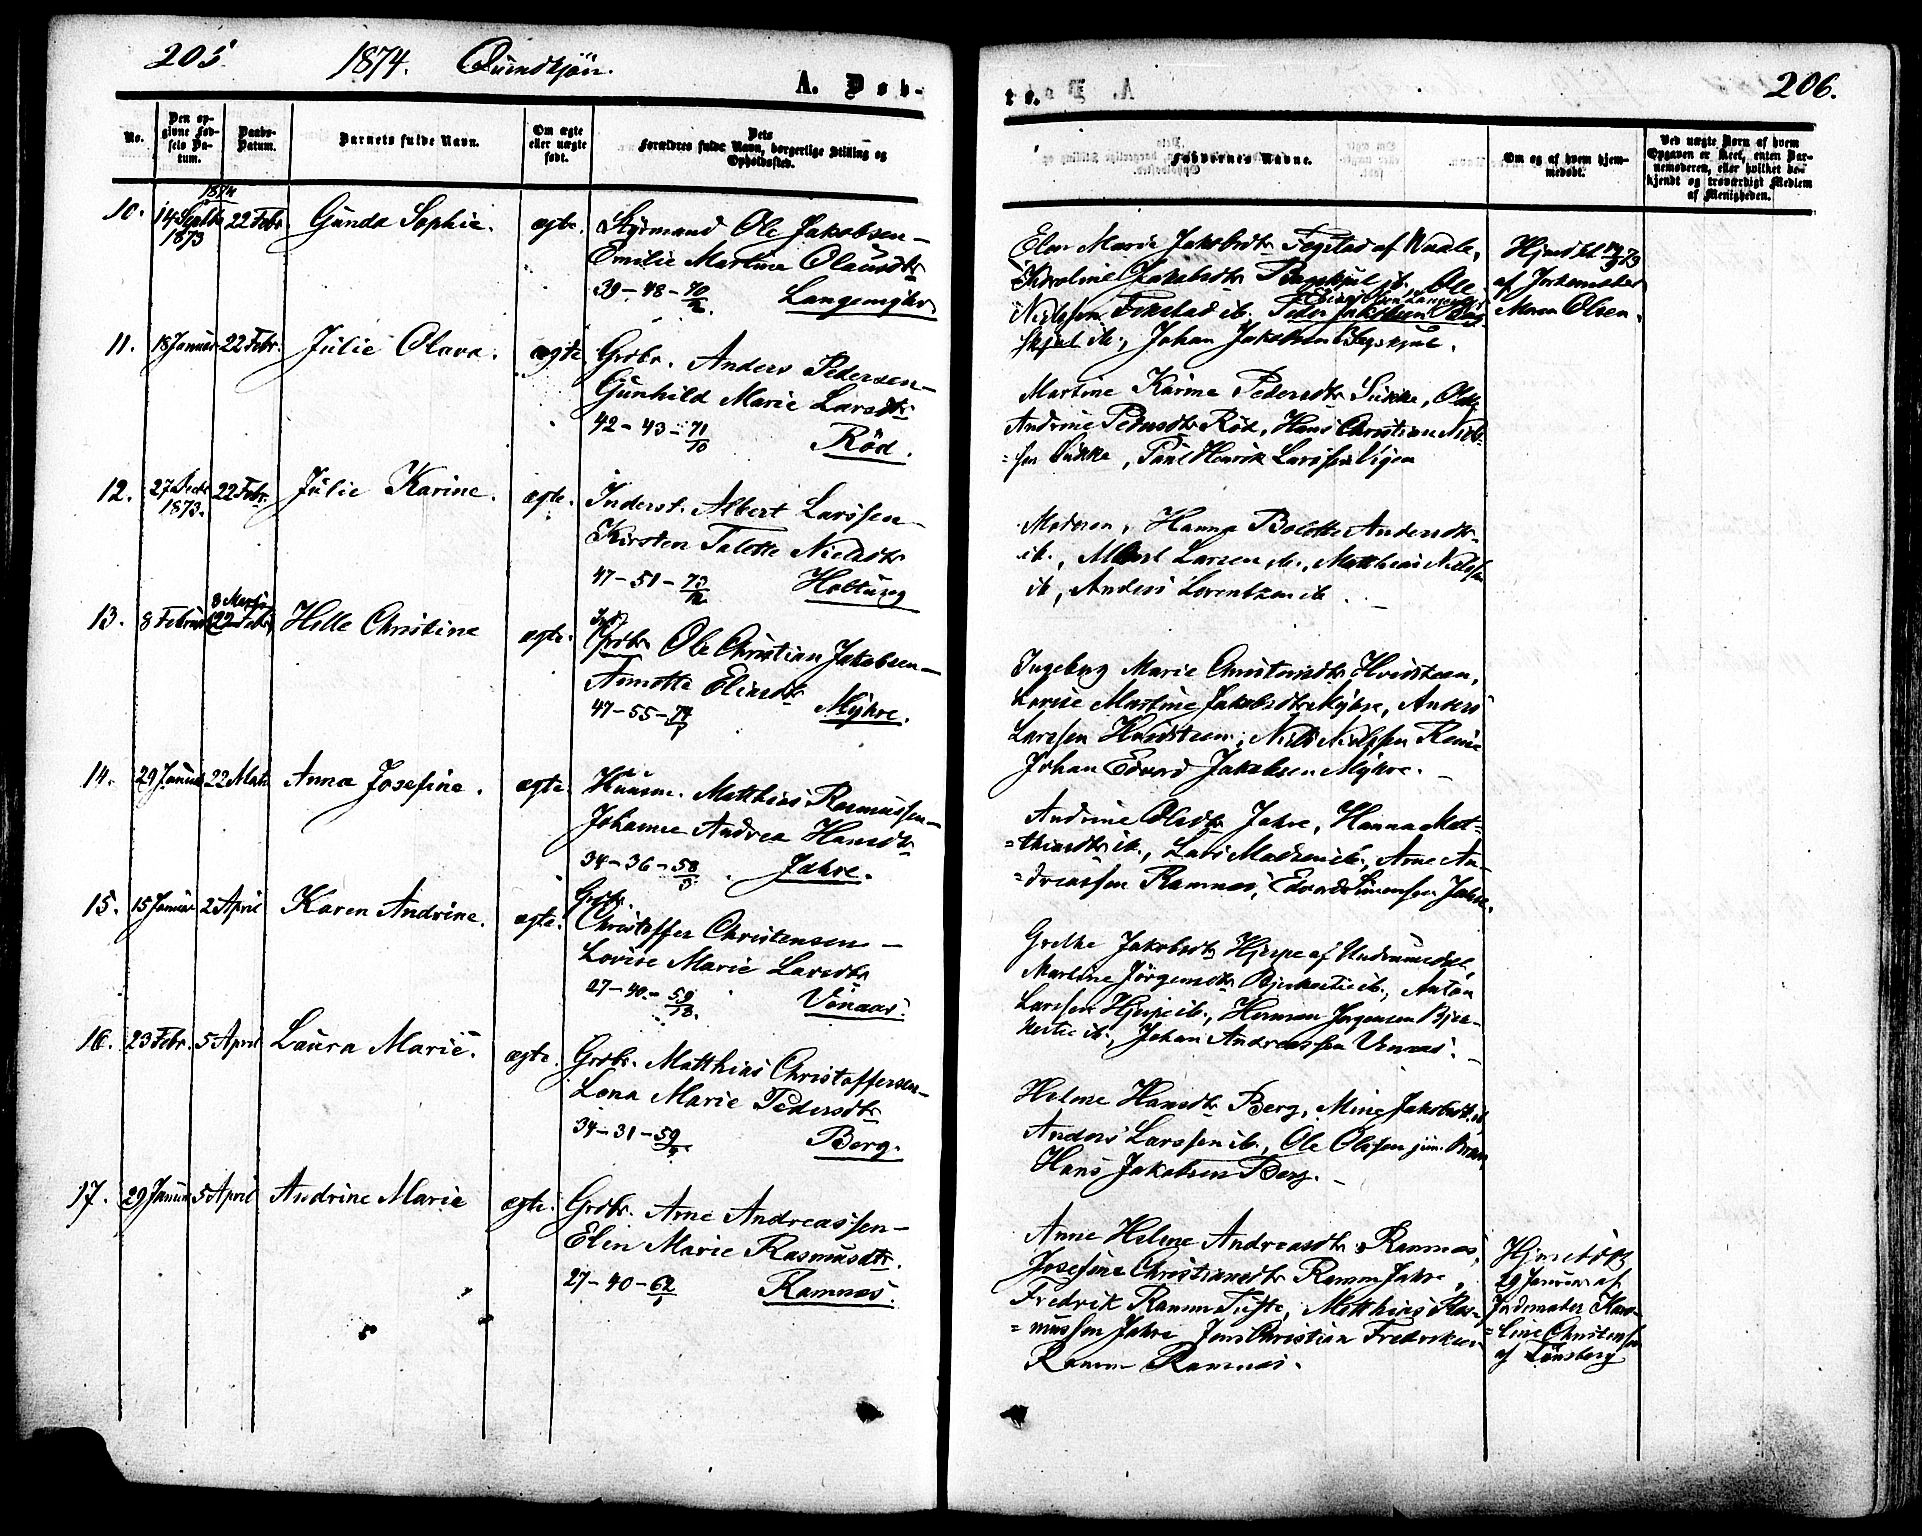 205. 1874. Quindkjön. A. Døb-
No.
Den opgivne Fødsels Datum.
Daabs-Datum.
Barnets fulde Navn.
Om ægte eller uægte født.
Dets Forældres fulde Navn, borgerlige Stilling og Opholdssted.
10. 14 Septbr 1873 1874 22 Febr. Gunda Sophie. ægte. Styrmand Ole Jakobsen –
Emilie Martine Olausdtr
39 – 48 – 70/12. Langemyhr
11. 18 Januar 22 Febr. Julie Olava. ægte Grdbr. Anders Pedersen –
Gunhild Marie Larsdtr
42 – 43 – 71/10 Röd.
12. 27 Decbr 1873. 22 Febr. Julie Karine. ægte. Inderst. Albert Larssen –
Kirsten Talette Nielsdtr
47 – 51 – 73/12 Holtung
13. 8 Februar 8 Marts 22 Febr. Helle Christine ægte. Grdbr Ole Christian Jakobsen –
Annette Eliasdtr
47 – 55 – 74 Myhre.
14. 29 Januar 22 Marts Anna Josefine. ægte. Huusm. Matthias Rasmussen –
Johanne Andrea Hansdtr
34 – 36 – 58 Jahre.
15. 15 Januar 2 April Karen Andrine. ægte. Grdbr.
Christoffer Christensen –
Lovise Marie Larsdtr
27 – 40 – 59 Vinaas.
16. 23 Febr. 5 April Laura Marie. ægte. Grdbr. Matthias Christoffersen –
Lona Marie Pedersdtr
34 – 31 – 59 Berg.
17. 29 Januar 5 April Andrine Marie ægte. Grdbr. Arne Andreassen –
Elen Marie Rasmusdtr.
27 – 40 – 62 Ramnæs.
te. 206.
Faddernes Navne.
Om og af hvem hjemmedøbt.
Ved uægte Børn af hvem Opgaven er skeet, enten Barnemoderen, eller hvilket bekjendt og troværdigt Medlem af Menigheden.
Elen Marie Jakobsdtr Fogstad af Vaale,
Karoline Jakobsdtr Bogskjul ib. Ole
Nielssen Fogstad ib. Peder Jakobsen Bog-
skjul ib., Johan Jakobsen Bogskjul.
Hjmdbt 14/9 73
af Jordemoder
Maren Olsen.
Martine Karine Pedersdtr Sukke, Olea
Andrine Pedersdtr Röd, Hans Christian Niel-
=sen Sukke, Paul Henrik Larssen Vigen
Madren, Hanna Bolette Andersdtr
ib., Albert Larsen ib., Matthias Nielssen
ib, Anders Lorentzen ib. –
Ingeborg Marie Christensdtr Hvidsteen,
Karine Martine Jakobsdtr Myhre, Anders
Larssen Hvidsteen, Niels Nielssen Revie
Johan Edvard Jakobsen Myhre. –
Andrine Olsdtr Jahre, Hanna Mat-
=thiasdtr ib., Lars Madsen ib., Arne An-
=dreassen Ramnæs, Edvard Simensen Jahre.
Grethe Jakobsdtr Hjerpe af Undrumsdal
Martine Jörgensdtr Bjerkestie ib., Anton
Larssen Hjerpe ib., Herman Jorgensen Bjer-
kestie ib., Johan Andreassen Vinæs. –
Helene Hansdtr Berg, Mine Jakobsdt. ib
Anders Larssen ib., Ole Olssen jun.
Hans Jakobsen Berg. –
Anne Helene Andreasdtr Ramnæs,
Josefine Christiansdtr Ramm Jahre,
Fredrik Ramm Tufte, Matthias Ras-
=mussen Jahre Jens Christian Fredriksen
Ramm Ramnæs.
Hjmedöbt
29 Januar af
Jordemoder Karo-
=line Christensen
af Tönsberg